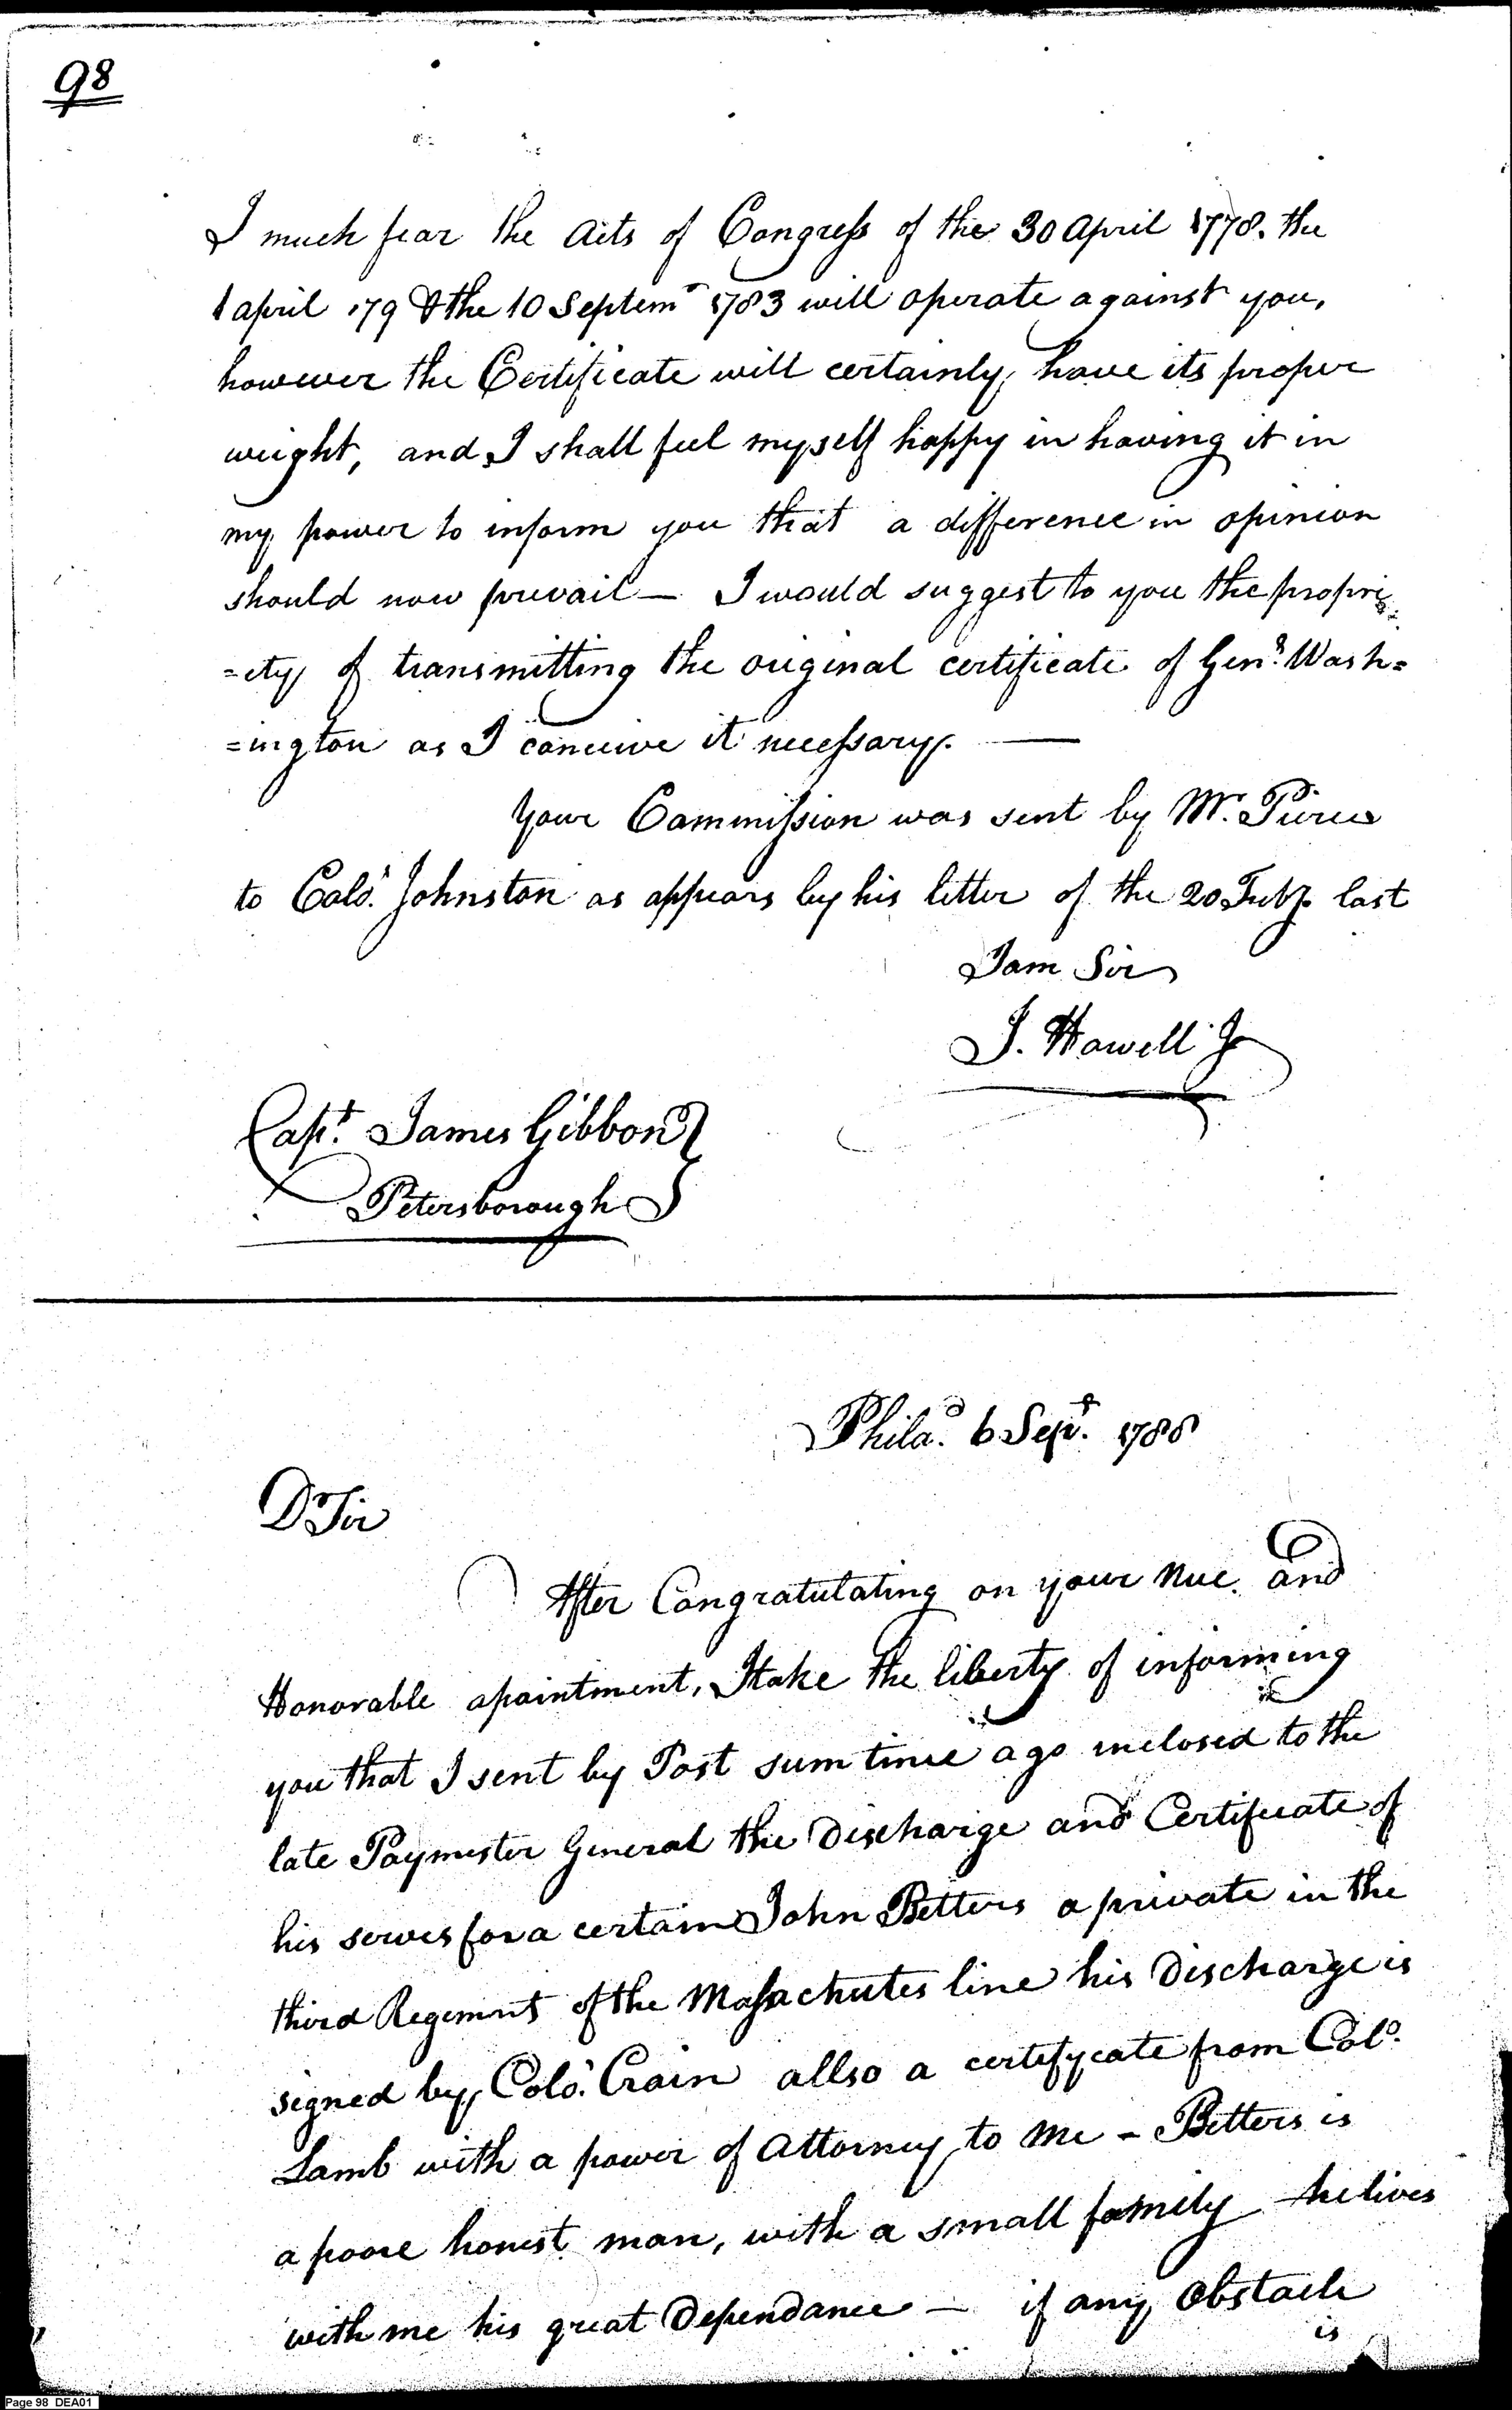 98
I much fear the Acts of Congress of the 30 April 1778. the
1 april 179 & the 10 Septemr 1783 will operate against you,
however the Certificate will certainly have its proper
weight, and I shall feel myself happy in having it in
my power to inform you that a difference in opinion
should now prevail — I would suggest to you the propri
=ety of transmitting the original certificate of Genl. Wash=
=ington as I conceive it necessary. —
Your Commission was sent by Mr. Pierce
to Colo. Johnston as appears by his letter of the 20 Feby. last
I am Sir
J. Howell Jr
Capt. James Gibbon
Petersborough
Philad. 6 Sept. 1788
D Sir
After Congratulating on your nue. and
Honorable apointment, I take the liberty of informing
you that I sent by Post sum time ago inclosed to the
late Paymester General the Discharge and Certificate of
his serves for a certain John Betters a private in the
third Regemnt of the Massachutes line his Discharge is
signed by Colo. Crain allso a certifycate from Colo.
Lamb with a power of Attorney to me – Betters is
a poore honest man, with a small family he lives
with me his great Dependance — if any Obstacle
is
Page 98 DEA01